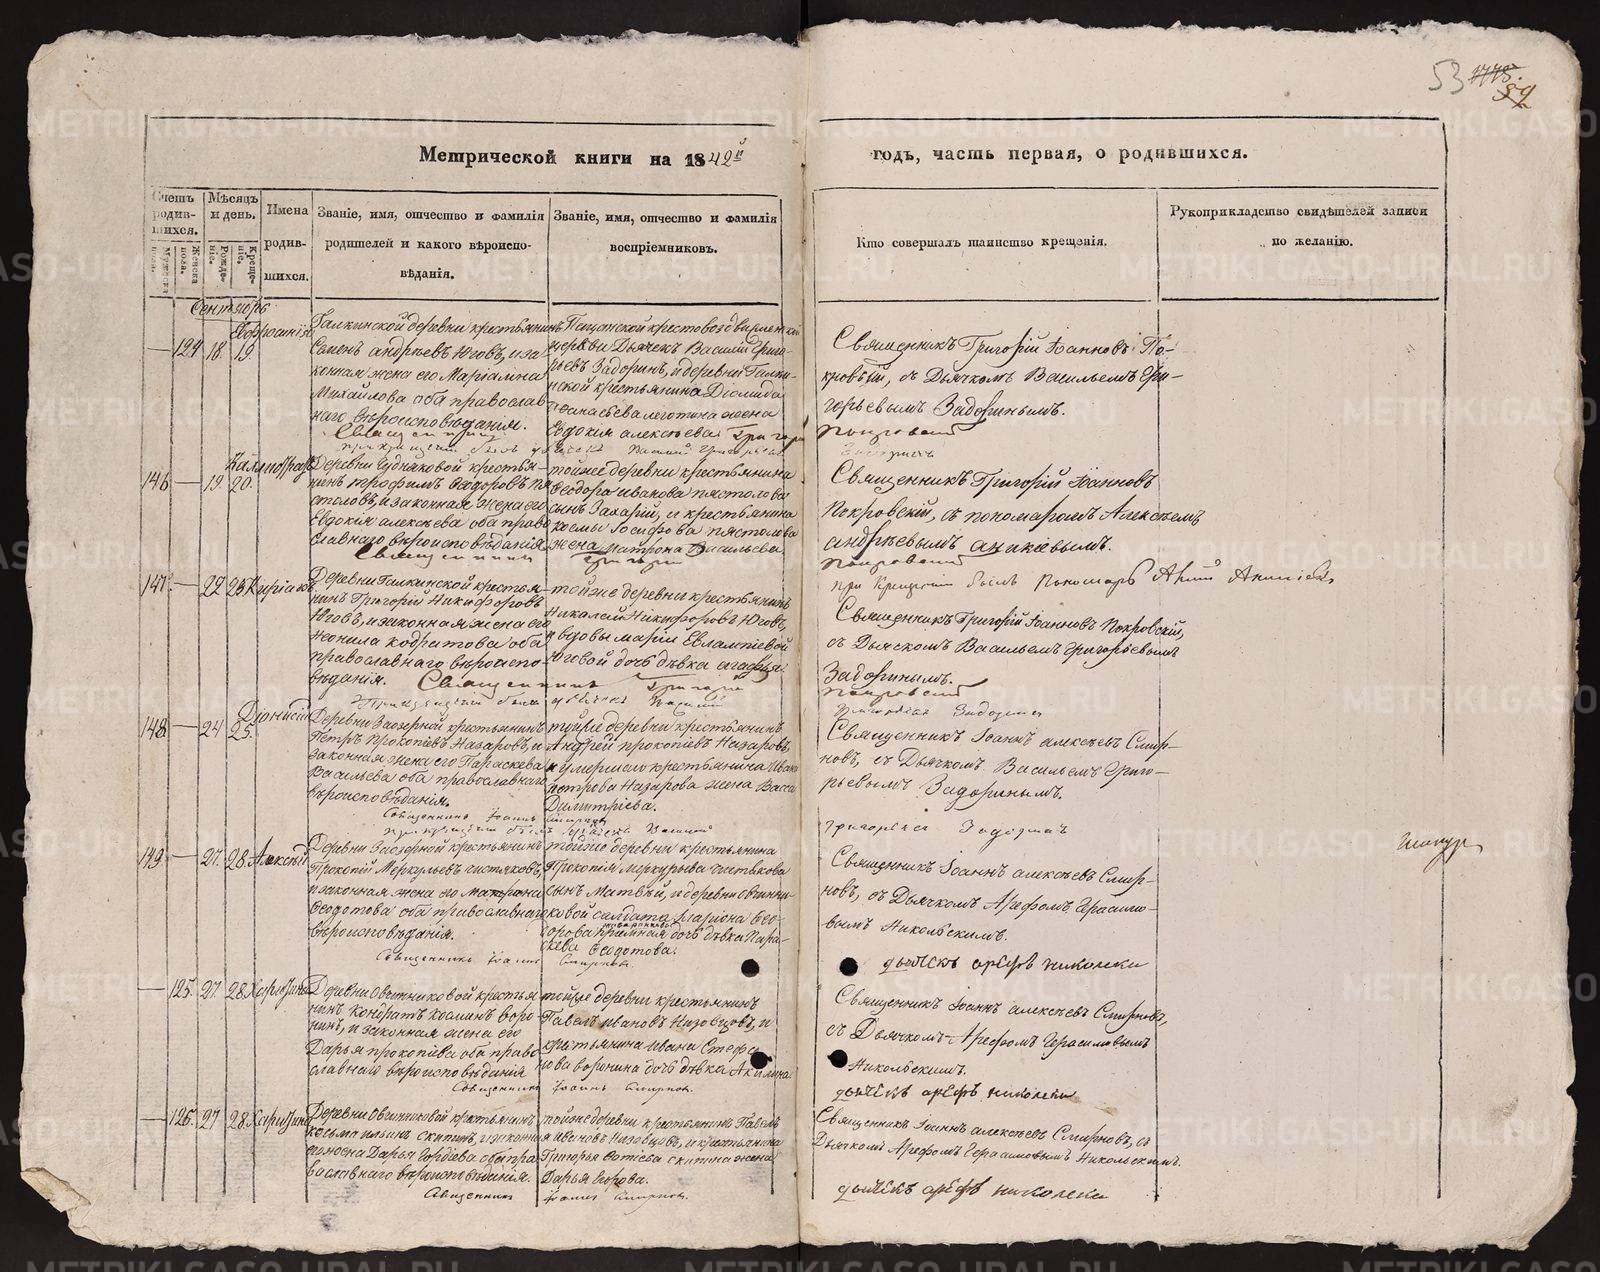 53 1778. 39
Метрической книги на 1842й
годъ, часть первая, о родившихся.
Счетъ родив-шихся.
Мѣсяцъ и день.
Имена родив-шихся.
Званіе, имя, отчество и фамилія родителей и какого вѣроиспо-вѣданія.
Званіе, имя, отчество и фамилія воспріемниковъ.
Кто совершалъ таинство крещенія.
Рукоприкладство свидѣтелей записи по желанію.
Мужеска пола.
Женска пола.
Рожде-ніе.
Креще-ніе.
Сентябрь
— 124 18. 19. Евфросинія
Галкинской деревни крестьянинъ
Семенъ андрѣевъ Юговъ, и за-
конная жена его Маріамна
Михайлова оба православ-
наго вѣроисповѣданія.
Священникъ
церкви Дьячекъ Василій Григо-
рьевъ Задоринъ, и деревни Галки-
нской крестьянина Діомида
жена
Евдокія алексѣева. Григорій
Священникъ Григорій Іоанновъ По-
кровскій, съ Дьячкомъ Васильемъ Гри-
горьевымъ Задоринымъ.
Покровскій
146 — 19. 20. Каллистратъ
Деревни Чудняковой крестья-
нинъ трофимъ Ѳедоровъ Пя-
столовъ, и законная жена его
Евдокія алексѣева оба право-
славнаго вѣроисповѣданія.
Священникъ
тойже деревни крестьянина
Ѳеодора иванова пястолова
сынъ Захарій, и крестьянина
космы Іосифова пястолова
жена матрона Васильева
Григорій
Священникъ Григорій Іоанновъ
Покровскій, съ пономаремъ Алексѣемъ
андрѣевымъ аникіевымъ.
Покровскій
при Крещеніи былъ Пономарь
147. — 22 23 Киріакъ
Деревни Галкинской крестья-
нинъ Григорій Никифоровъ
Юговъ, и законная жена его
Неонила кодратова оба
православнаго вѣроиспо-
вѣданія. Священникъ Григорій
тойже деревни крестьянинъ
Николай Никифоровъ Юговъ,
и вдовы маріи Евлампіевой
Юговой дочь дѣвка агафья.
Священникъ Григорій Іоанновъ Покровскій,
съ Дьячкомъ Васильемъ Григорьевымъ
Задоринымъ.
Покровскій
148. — 24 25. Діонисій
Деревни Заозерной крестьянинъ
Петръ Прокопіевъ Назаровъ, и
законная жена его Параскева
Васильева оба православнаго
вѣроисповѣданія.
Священникъ Іоаннъ Смирновъ
тойже деревни крестьянинъ
Андрей прокопіевъ Назаровъ
и умершаго крестьянина Ивана
петрова Назарова жена Васса
Димитріева.
Священникъ Іоаннъ алексѣевъ Смир-
новъ, съ Дьячкомъ Васильемъ Григо-
рьевымъ Задоринымъ.
149. — 27. 28. Алексѣй
Деревни Заозерной крестьянинъ
Прокопій Меркульевъ чистяковъ,
и законная жена его матрона
Ѳеодотова оба православнаго
вѣроисповѣданія.
Священникъ Іоаннъ Смирновъ.
тойже деревни крестьянина
Прокопія меркурьева чистякова
сынъ Матвѣй, и деревни овчинни-
ковой солдата Иларіона Ѳео-
дорова приемная дочь дѣвка Пара-
скева Ѳеодотова.
Священникъ Іоаннъ алексѣевъ Смир-
новъ, съ Дьячкомъ Арефомъ Герасимо-
вымъ Никольскимъ.
дьячекъ арефъ николски
— 125. 27. 28. Харитина
Деревни Овчинниковой крестья-
нинъ кондратъ косминъ воро-
нинъ, и законная жена его
Дарья прокопіева оба право-
славнаго вѣроисповѣданія
Священникъ Іоаннъ Смирновъ.
тойже деревни крестьянинъ
Павелъ ивановъ Низовцовъ, и
крестьянина ивана Стефа-
нова воронина дочь дѣвка Акилина.
Священникъ Іоаннъ алексѣевъ Смирновъ,
съ Дьячкомъ Арефомъ Герасимовымъ
Никольскимъ.
дьячекъ арефъ николски
— 126. 27 28. Харитина
Деревни Овчинниковой крестьянинъ
косьма ильинъ скипинъ, и законна-
я жена Дарья Гордѣева оба пра-
вославнаго вѣроисповѣданія.
Священникъ Іоаннъ Смирновъ.
тойже деревни крестьянинъ Павелъ
ивановъ Низовцовъ, и крестьянина
Григорья Фотіева скипина жена
Дарья Егорова.
Священникъ Іоаннъ алексѣевъ Смирновъ, съ
Дьячкомъ Арефомъ Герасимовымъ Никольскимъ.
дьячекъ арефъ николски
METRIKI.GASO-URAL.RU